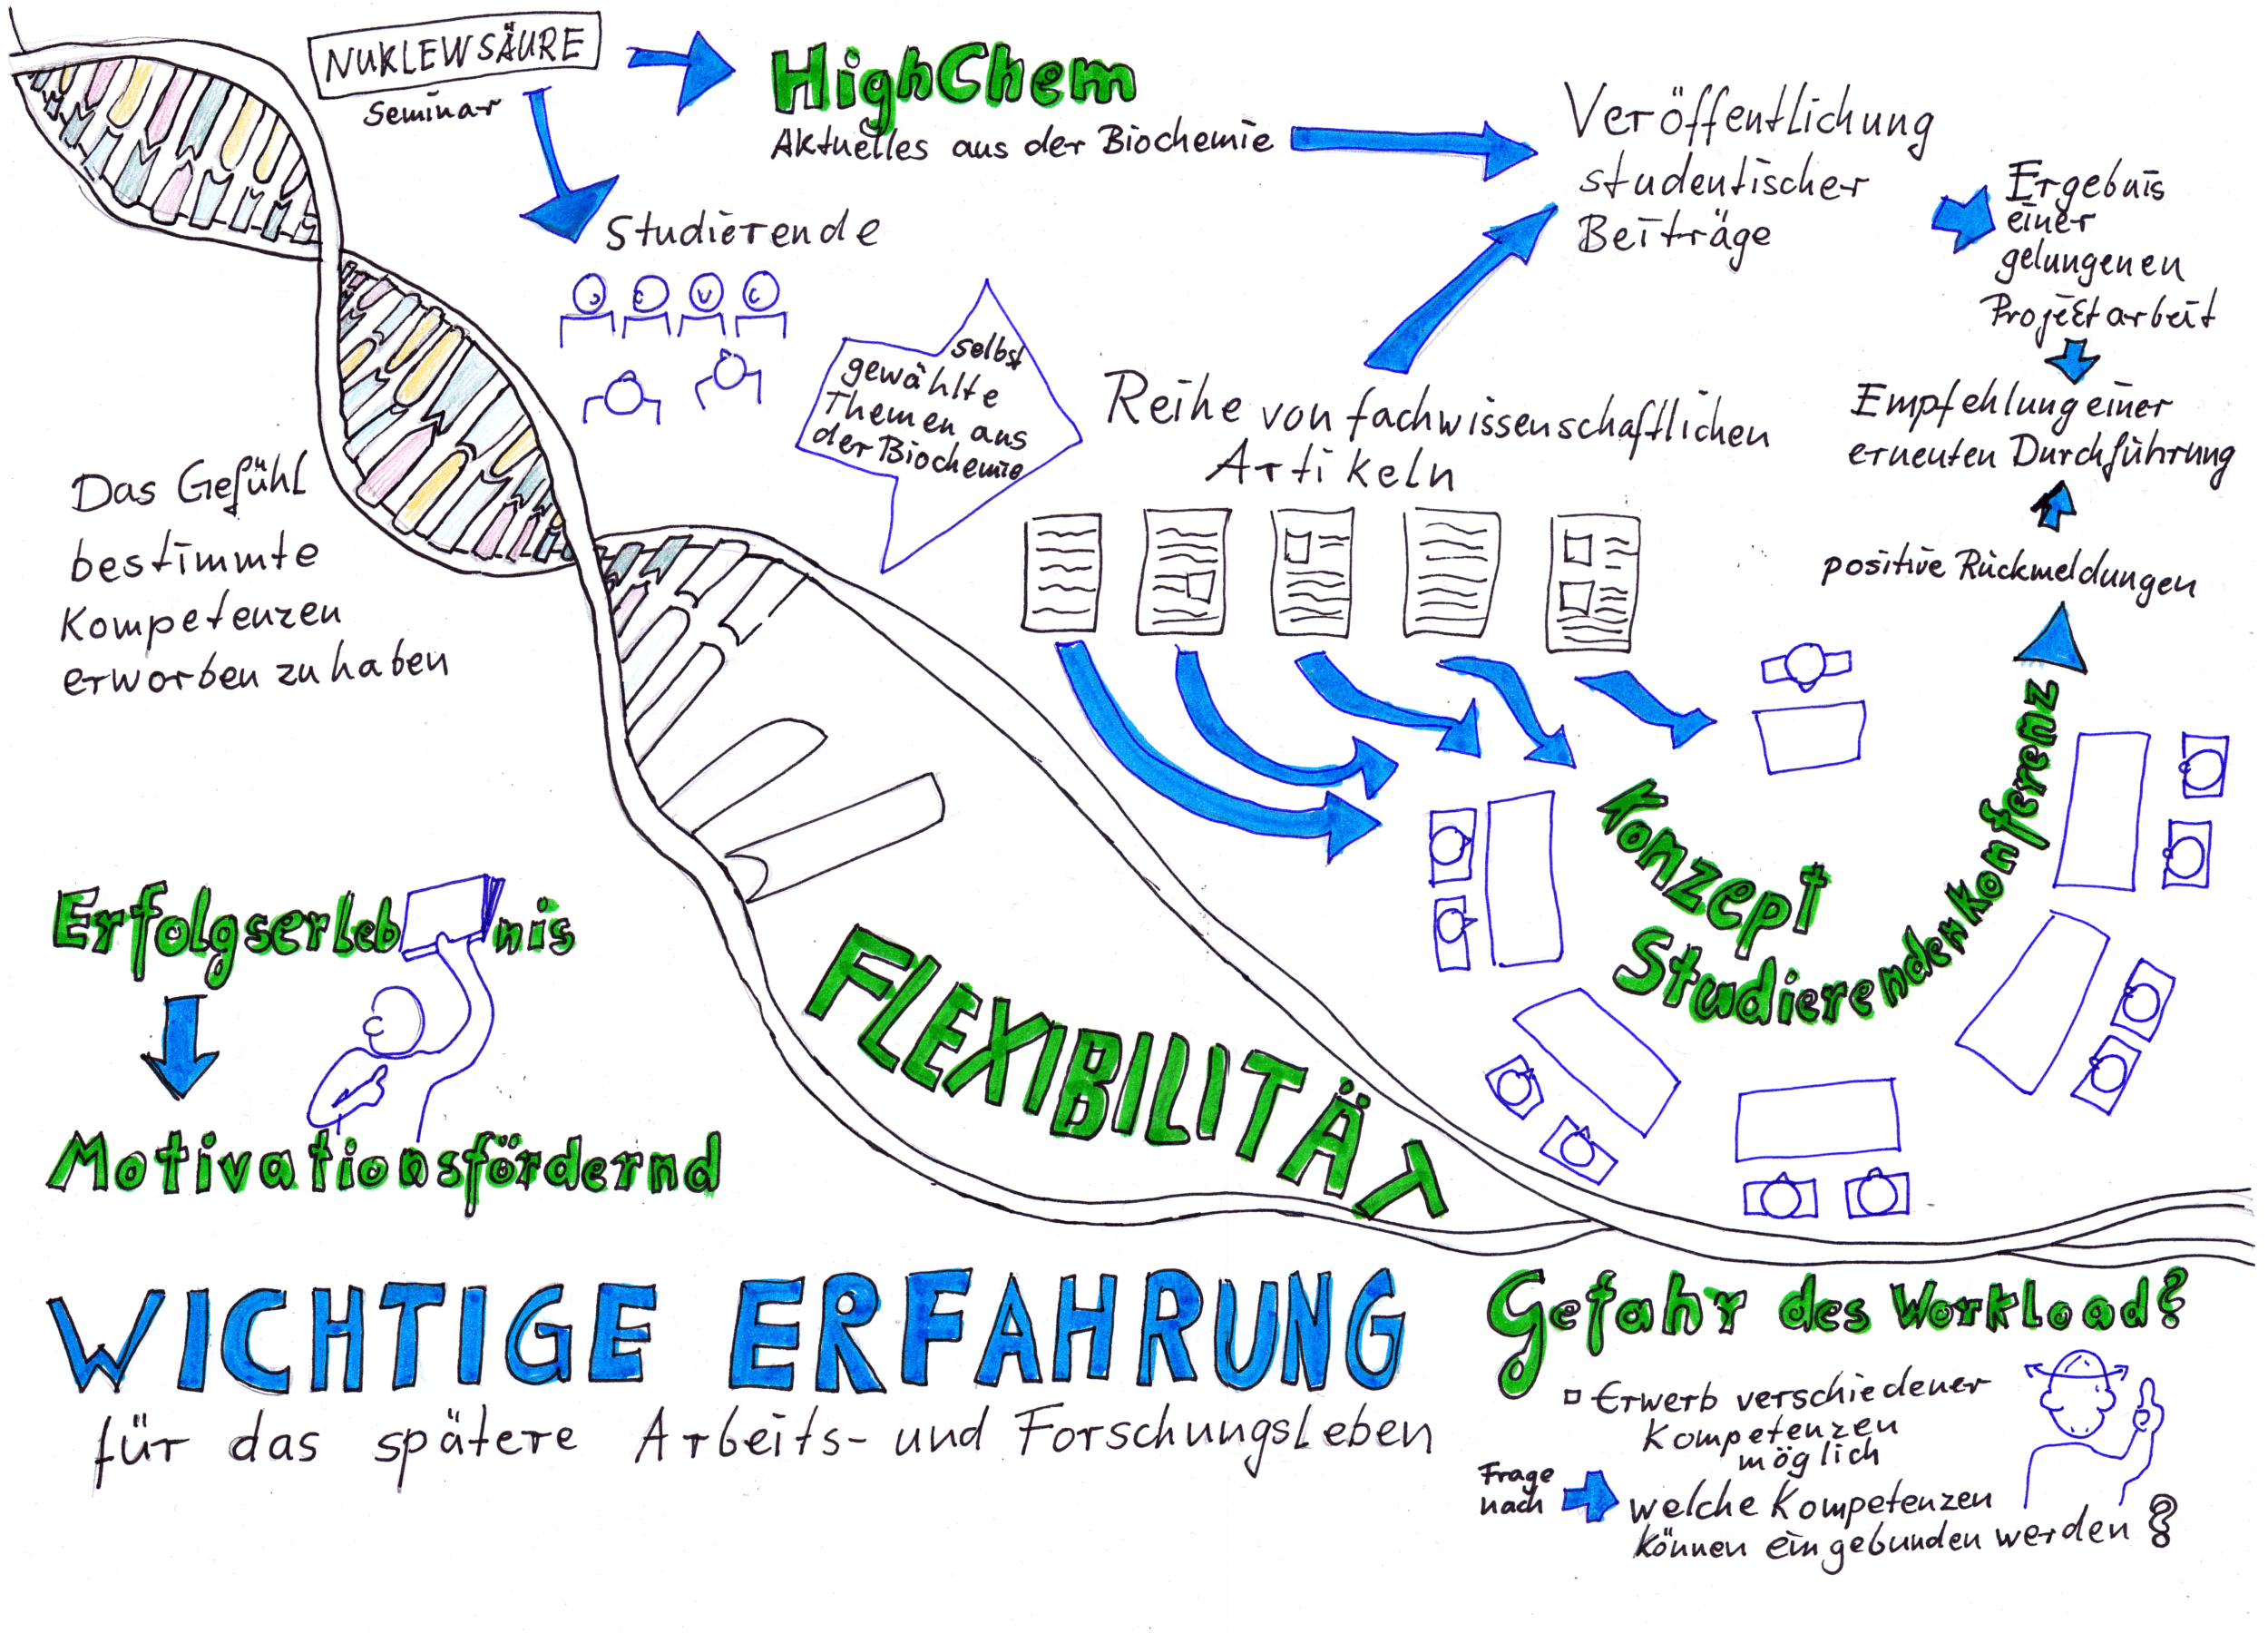 NUKLEWSÄURE
Seminar
HighChem
Aktuelles aus der Biochemie
Studierende
Veröffentlichung
studentischer
Beiträge
Ergebnis
einer
gelungenen
Projektarbeit
Empfehlung einer
erneuten Durchführung
positive Rückmeldungen
selbst
gewählte
Themen aus
der Biochemie
Reihe von fachwissenschaftlichen
Artikeln
Das Gefühl
bestimmte
Kompetenzen
erworben zu haben
Konzept
Studierendenkonferenz
Erfolgserlebnis
Motivationsfördernd
FLEXIBILITÄT
WICHTIGE ERFAHRUNG
für das spätere Arbeits- und Forschungsleben
Gefahr des Workload?
Erwerb verschiedener
Kompetenzen
möglich
Frage
nach
welche Kompetenzen
können eingebunden werden?